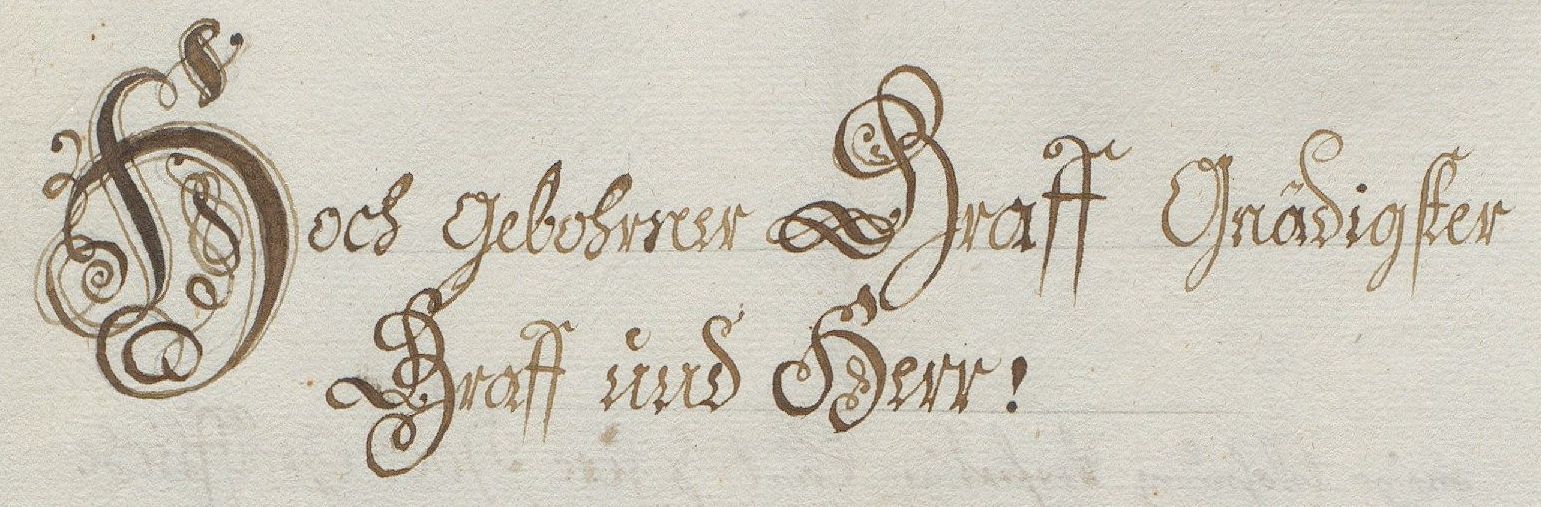 Hoch gebohrner Graff Gnädigster
Graff und Herr!